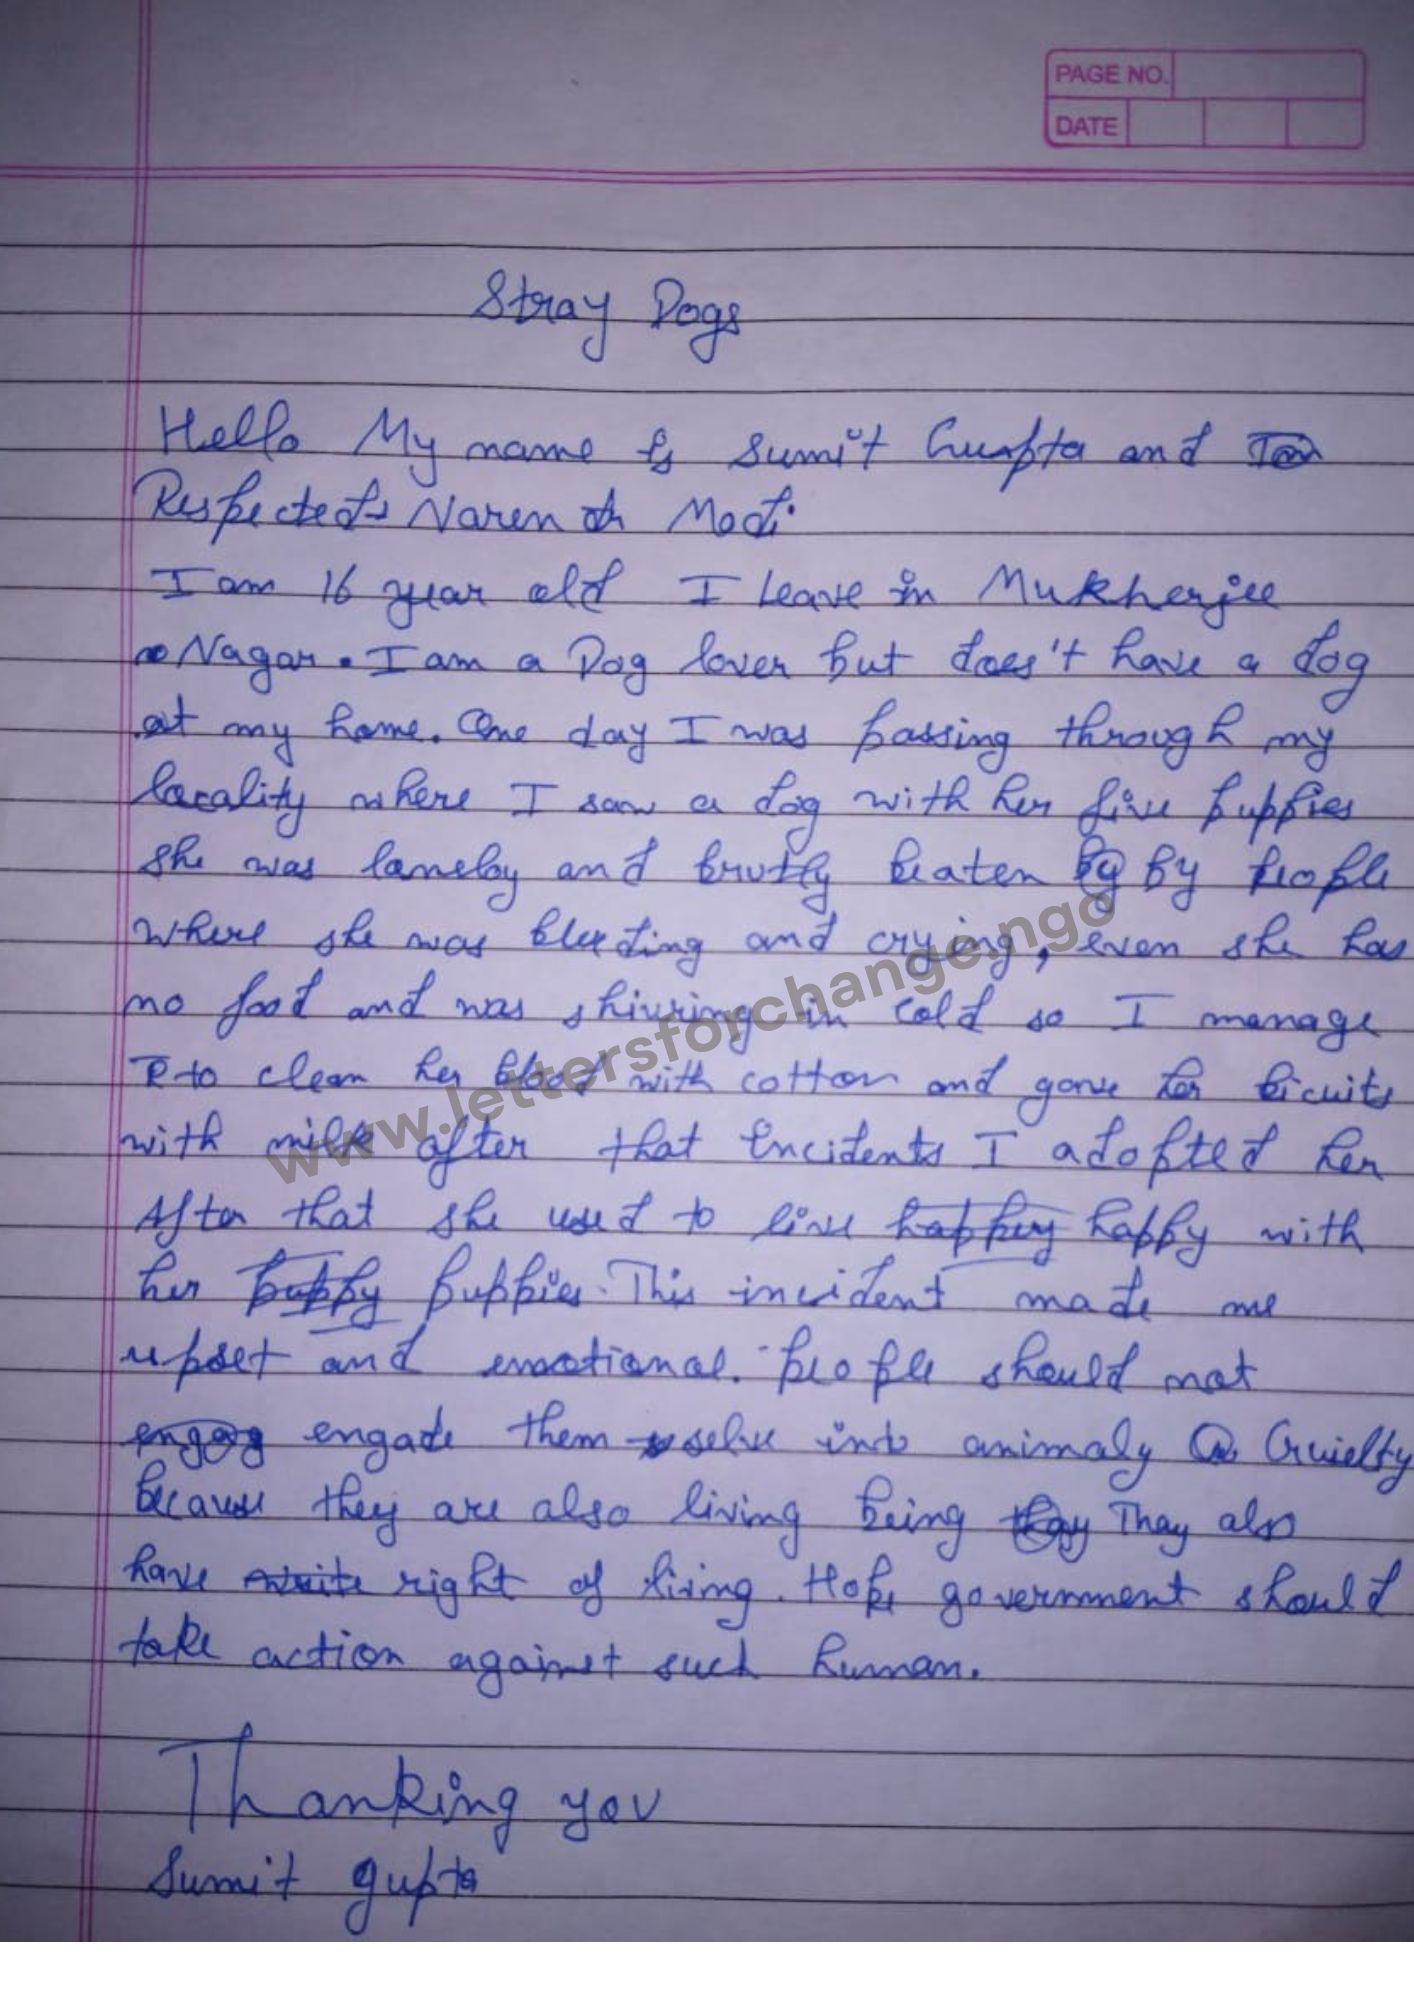 PAGE NO.
DATE
Stray Dogs
Hello My name is Sumit Gupta and
Respected Narendr Modi
I am 16 year old I leave in Mukherjee
Nagar. I am a Dog lover but does't have a dog
at my home. One day I was passing through my
locality where I saw a dog with her five puppies
she was loneloy and brutly beaten by by people
where she was bleeding and crying, even she has
no food and was shivring in cold so I manage
to clean her blood with cotton and gave her bicuits
with milk after that incidents I adopted her
After that she used to live happy happy with
her puppy puppies. This incident made me
upset and emotional. people should not
engag engade them selve into animaly Cruielty
because they are also living being they Thay also
have write right of living. Hope government should
take action against such human.
Thanking you
Sumit gupta
www.lettersforchange.ngo